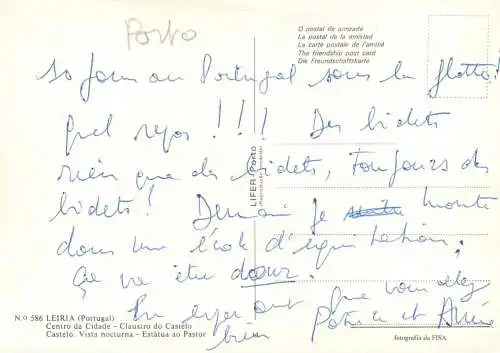 Porto
O postal da amizade
La postal de la amistad
La carte postale de l'amitié
The friendship post card
Die Freundschaftskarte
10 jours au Portugal sous la flotte!
Quel repos!!! Des bidets
rien que des bidets, toujours des
bidets! Demain je monte
dans une école d'équitation;
ça va être doux.
En espérant que vous allez
bien Patrice et
LIFER - Porto
N.º 586 LEIRIA (Portugal)
Centro da Cidade - Claustro do Castelo
Castelo. Vista nocturna - Estátua ao Pastor
fotografia da FISA